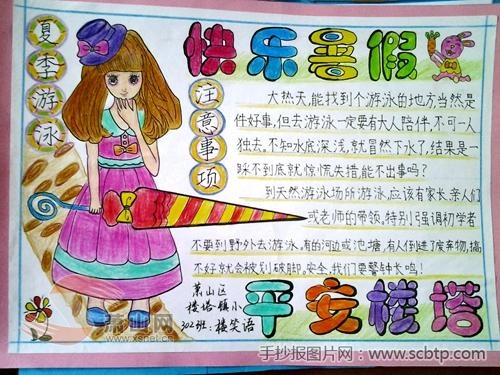 快乐暑假
夏季游泳
注意事项
大热天,能找到个游泳的地方,当然是
件好事,但去游泳一定要有大人陪伴,不可一人
独去。不知水底深浅,就冒然下水了,结果是一
踩不到底就惊慌失措,能不出事吗?
到天然游泳场所游泳,应该有家长、亲人们
或老师的带领,特别强调初学者
不要到野外去游泳。有的河边或池塘,有人倒进了废弃物,搞
不好就会被划破脚。安全,我们要警钟长鸣!
萧山区
楼塔镇小
302班:楼笑语
平安楼塔
萧山网
www.xsnet.cn
手抄报图片网:www.scbtp.com